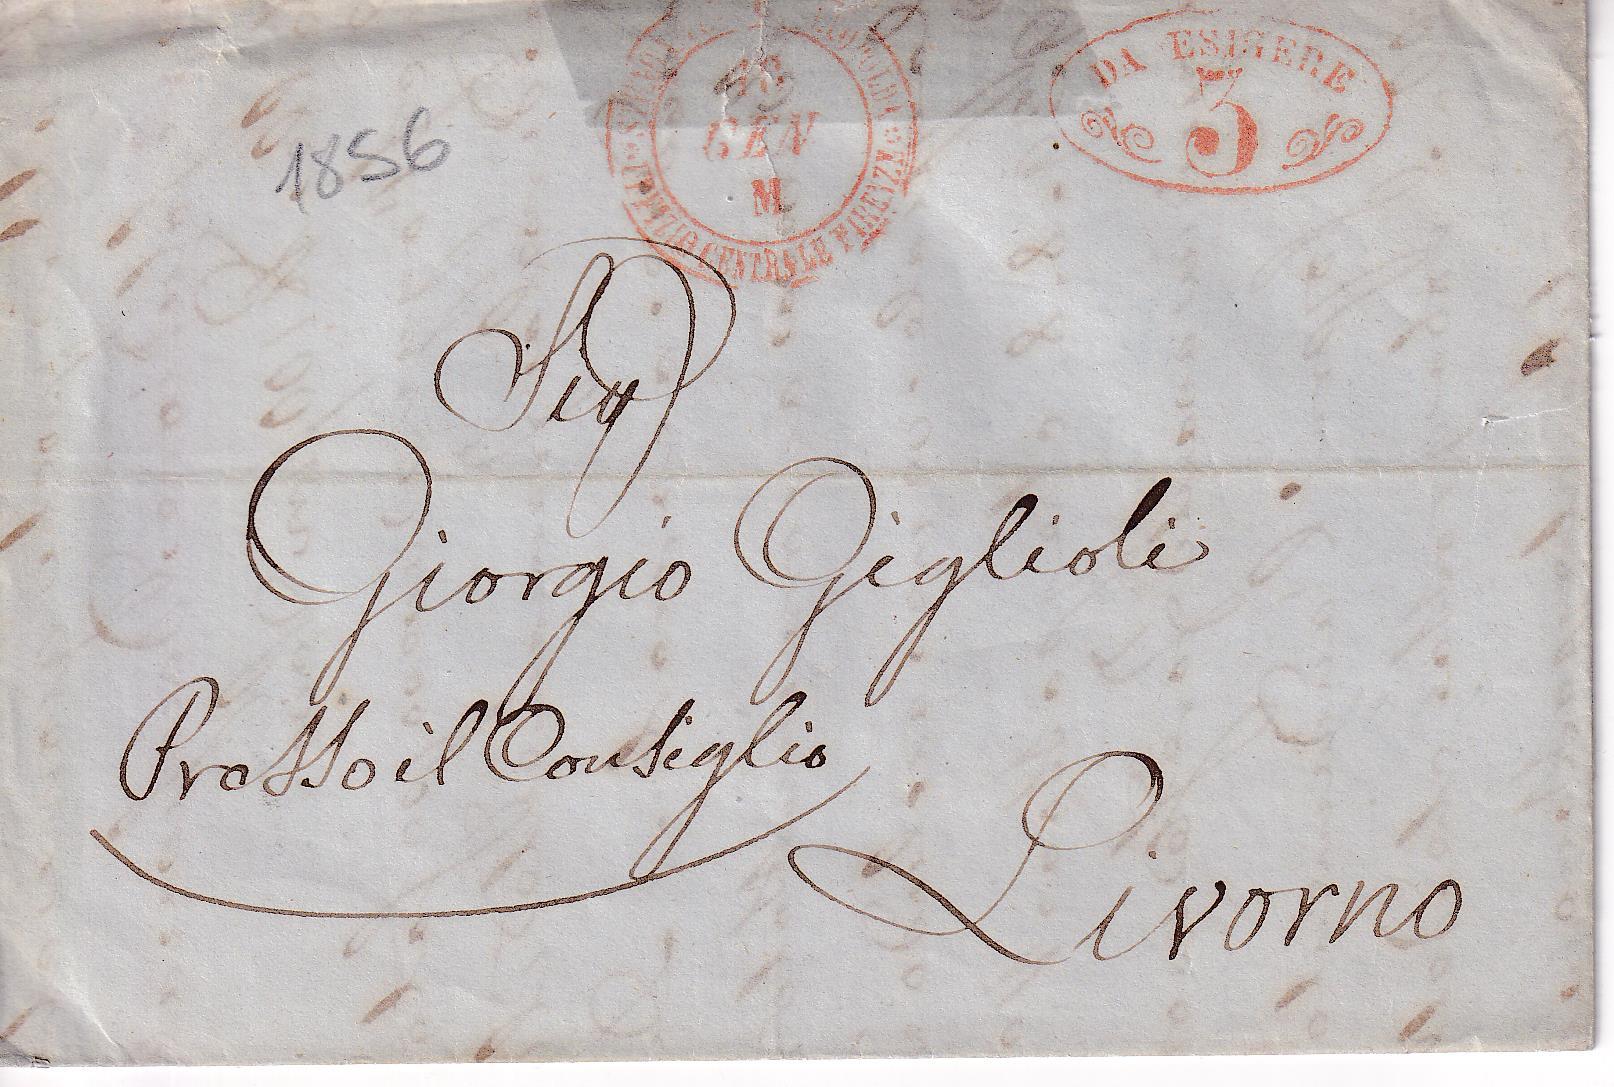 DA ESIGERE
3
GEN
M
UFFIZIO CENTRALE FIRENZE
1856
Sig
Giorgio Giglioli
Presso il Consiglio
Livorno